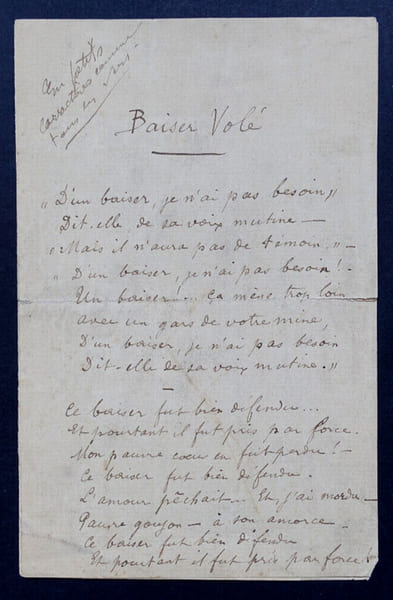 en petits
caractères comme
tous les vers -
Baiser Volé
"D'un baiser, je n'ai pas besoin,"
Dit-elle, de sa voix mutine -
"Mais il n'aura pas de témoin," -
"D'un baiser, je n'ai pas besoin! -
Un baiser!... ça mène trop loin
avec un gars de votre mine,
D'un baiser, je n'ai pas besoin
Dit-elle de sa voix mutine."
-
Ce baiser fut bien défendu...
Et pourtant il fut pris par force.
Mon pauvre cœur en fut perdu! -
Ce baiser fut bien défendu.
L'amour pêchait... Et j'ai mordu -
Pauvre goujon - à son amorce -
Ce baiser fut bien défendu
Et pourtant il fut pris par force!